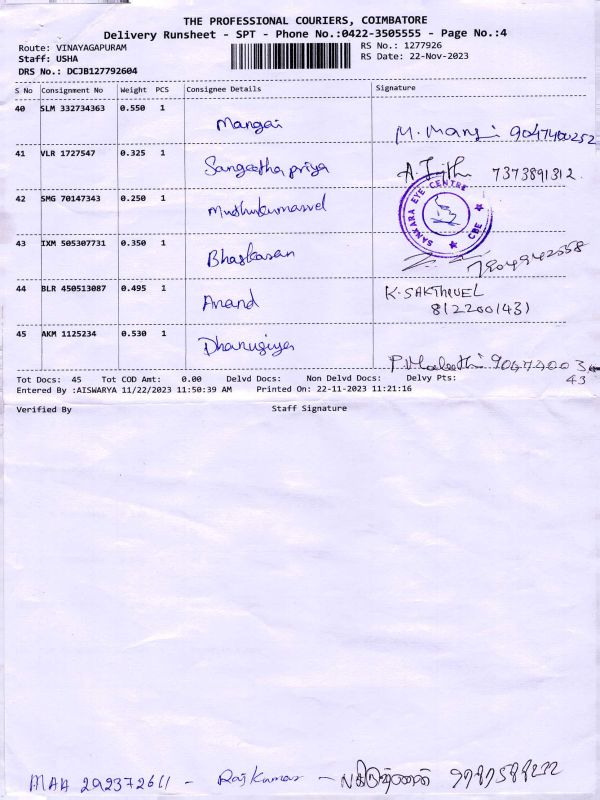 THE PROFESSIONAL COURIERS, COIMBATORE
Delivery Runsheet - SPT - Phone No.:0422-3505555 - Page No.:4
Route: VINAYAGAPURAM
Staff: USHA
DRS No.: DCJB127792604
RS No.: 1277926
RS Date: 22-Nov-2023
S No Consignment No Weight PCS Consignee Details Signature
40 SLM 332734363 0.550 1 Mangai M. Mangai 9047400252
41 VLR 1727547 0.325 1 Sangeetha priya A. 7373891312
42 SMG 70147343 0.250 1 Muthukumaravel
SANKARA EYE CENTRE CBE
43 IXM 505307731 0.350 1 Bhaskaran
44 BLR 450513087 0.495 1 Anand K. SAKTHIVEL
8122001431
45 AKM 1125234 0.530 1 P. Malathi
43
Tot Docs: 45 Tot COD Amt: 0.00 Delvd Docs: Non Delvd Docs: Delvy Pts:
Entered By :AISWARYA 11/22/2023 11:50:39 AM Printed On: 22-11-2023 11:21:16
Verified By Staff Signature
MAA 292372611 - Raj Kumar -